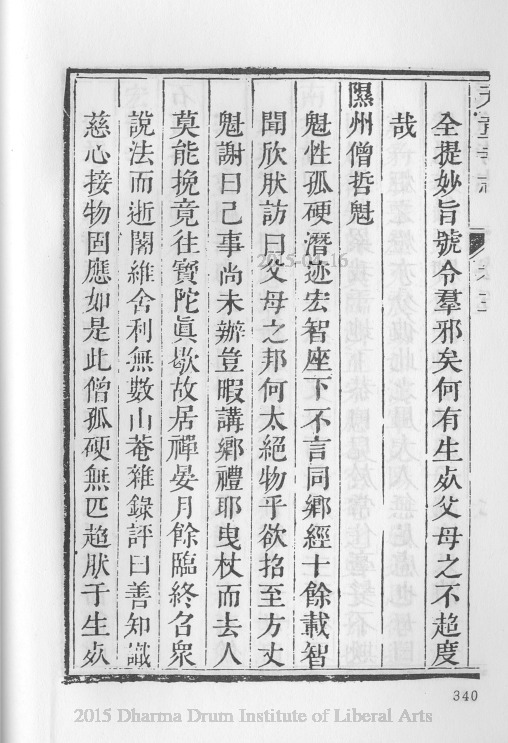 全提妙旨號令羣邪矣何有生㱟父母之不超度
哉
隰州僧哲魁
魁性孤硬潛迹宏智座下不言同鄉經十餘載智
聞欣肰訪曰父母之邦何太絕物乎欲招至方丈
魁謝曰己事尚未辦豈暇講鄉禮耶曳杖而去人
莫能挽竟往寶陀眞歇故居禪晏月餘臨終召衆
說法而逝闍維舍利無數山菴雜錄評曰善知識
慈心接物固應如是此僧孤硬無匹超肰于生㱟
340
2015-04-16
2015 Dharma Drum Institute of Liberal Arts